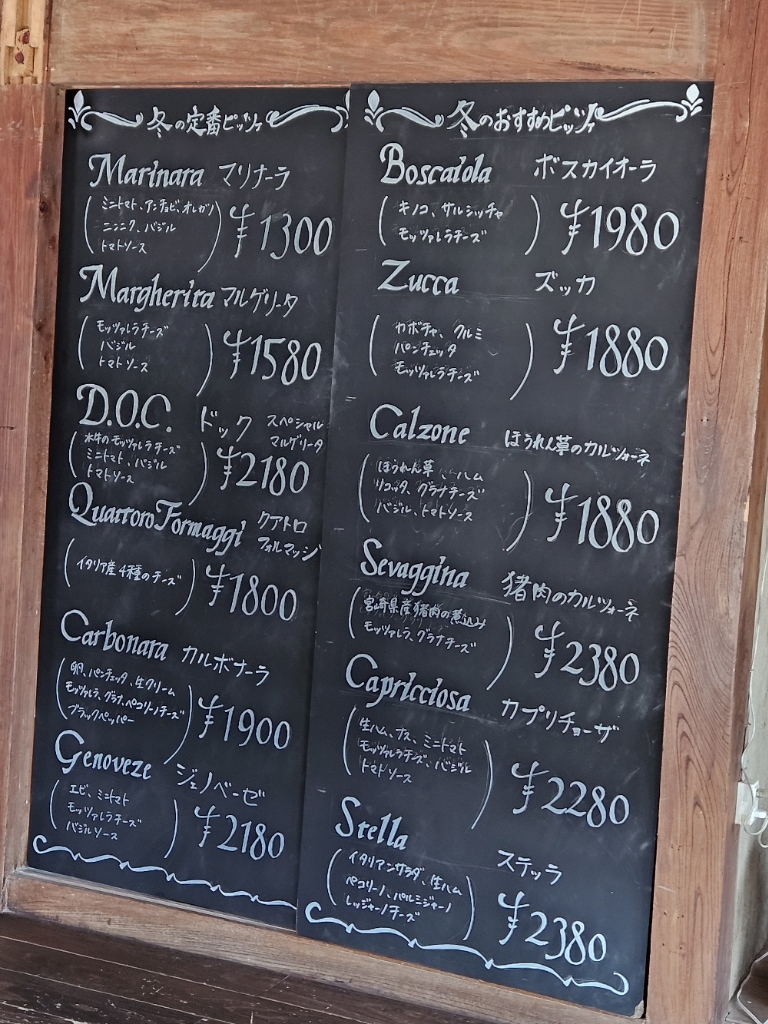 冬の定番ピッツァ
Marinara マリナーラ
(ミニトマト、アンチョビ、オレガノ
ニンニク、バジル
トマトソース) ¥1300
Margherita マルゲリータ
(モッツァレラチーズ
バジル
トマトソース) ¥1580
D.O.C. ドック スペシャル
マルゲリータ
(水牛のモッツァレラチーズ
ミニトマト、バジル
トマトソース) ¥2180
Quattoro Formaggi クアトロ
フォルマッジ
(イタリア産4種のチーズ) ¥1800
Carbonara カルボナーラ
(卵、パンチェッタ、生クリーム
モッツァレラ、グラナ、ペコリーノチーズ
ブラックペッパー) ¥1900
Genoveze ジェノベーゼ
(エビ、ミニトマト
モッツァレラチーズ
バジルソース) ¥2180
冬のおすすめピッツァ
Boscaiola ボスカイオーラ
(キノコ、サルシッチャ
モッツァレラチーズ) ¥1980
Zucca ズッカ
(カボチャ、クルミ
パンチェッタ
モッツァレラチーズ) ¥1880
Calzone ほうれん草のカルツォーネ
(ほうれん草、ハム
リコッタ、グラナチーズ
バジル、トマトソース) ¥1880
Sevaggina 猪肉のカルツォーネ
(宮崎県産猪肉の煮込み
モッツァレラ、グラナチーズ) ¥2380
Capricciosa カプリチョーザ
(生ハム、ナス、ミニトマト
モッツァレラチーズ、バジル
トマトソース) ¥2280
Stella ステッラ
(イタリアンサラダ、生ハム
ペコリーノ、パルミジャーノ
レッジャーノチーズ) ¥2380